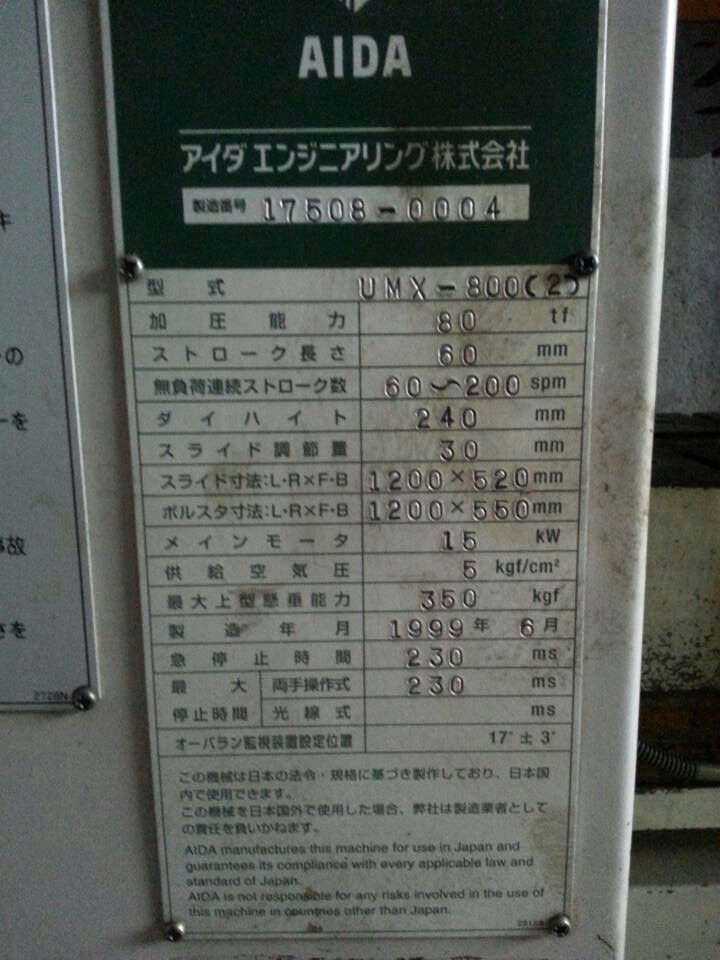 AIDA
アイダエンジニアリング株式会社
製造番号 17508-0004
型式 UMX-800(2)
加圧能力 80 tf
ストローク長さ 60 mm
無負荷連続ストローク数 60～200 spm
ダイハイト 240 mm
スライド調節量 30 mm
スライド寸法:L・R×F・B 1200×520 mm
ボルスタ寸法:L・R×F・B 1200×550 mm
メインモータ 15 kW
供給空気圧 5 kgf/cm²
最大上型懸垂能力 350 kgf
製造年月 1999年 6月
急停止時間 230 ms
最大 両手操作式 230 ms
停止時間 光線式 ms
オーバラン監視装置設定位置 17° ± 3°
この機械は日本の法令・規格に基づき製作しており、日本国
内で使用できます。
この機械を日本国外で使用した場合、弊社は製造業者として
の責任を負いかねます。
AIDA manufactures this machine for use in Japan and
guarantees its compliance with every applicable law and
standard of Japan.
AIDA is not responsible for any risks involved in the use of
this machine in countries other than Japan.
キ
の
ーを
事故
さを
2728N